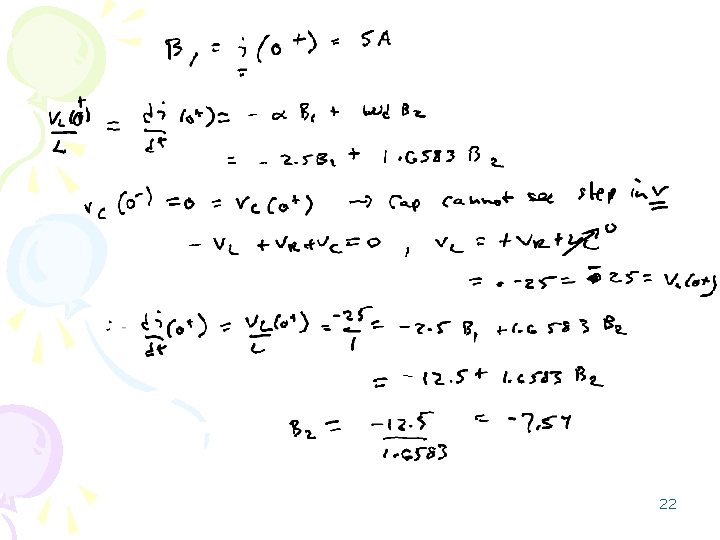 B₁ = i(0⁺) = 5A
V_L(0⁺)/L = di/dt (0⁺) = - α B₁ + ωd B₂
= - 2.5B₁ + 1.6583 B₂
v_c(0⁻) = 0 = v_c(0⁺) → Cap cannot see step in v
- v_L + v_R + v_c = 0 , v_L = + v_R + v_c 0
= -25 = 25 = v_L(0+)
∴ - di/dt (0⁺) = V_L(0⁺)/L = -25/1 = -2.5 B₁ + 1.6583 B₂
= -12.5 + 1.6583 B₂
B₂ = -12.5/1.6583 = -7.54
22